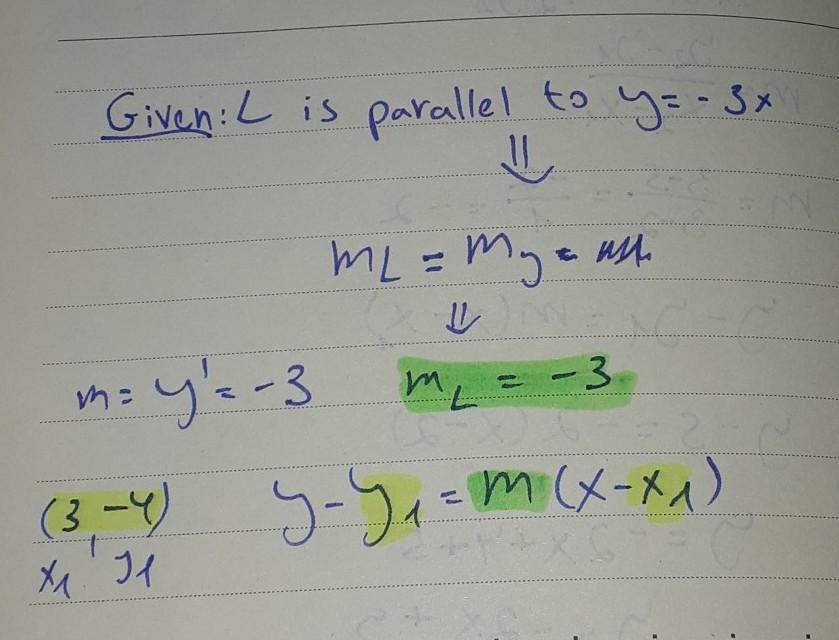 Given: L is parallel to y = -3x
⇓
mL = my =
⇓
m = y' = -3   mL = -3
(3, -4)   y - y1 = m (x - x1)
x1 y1